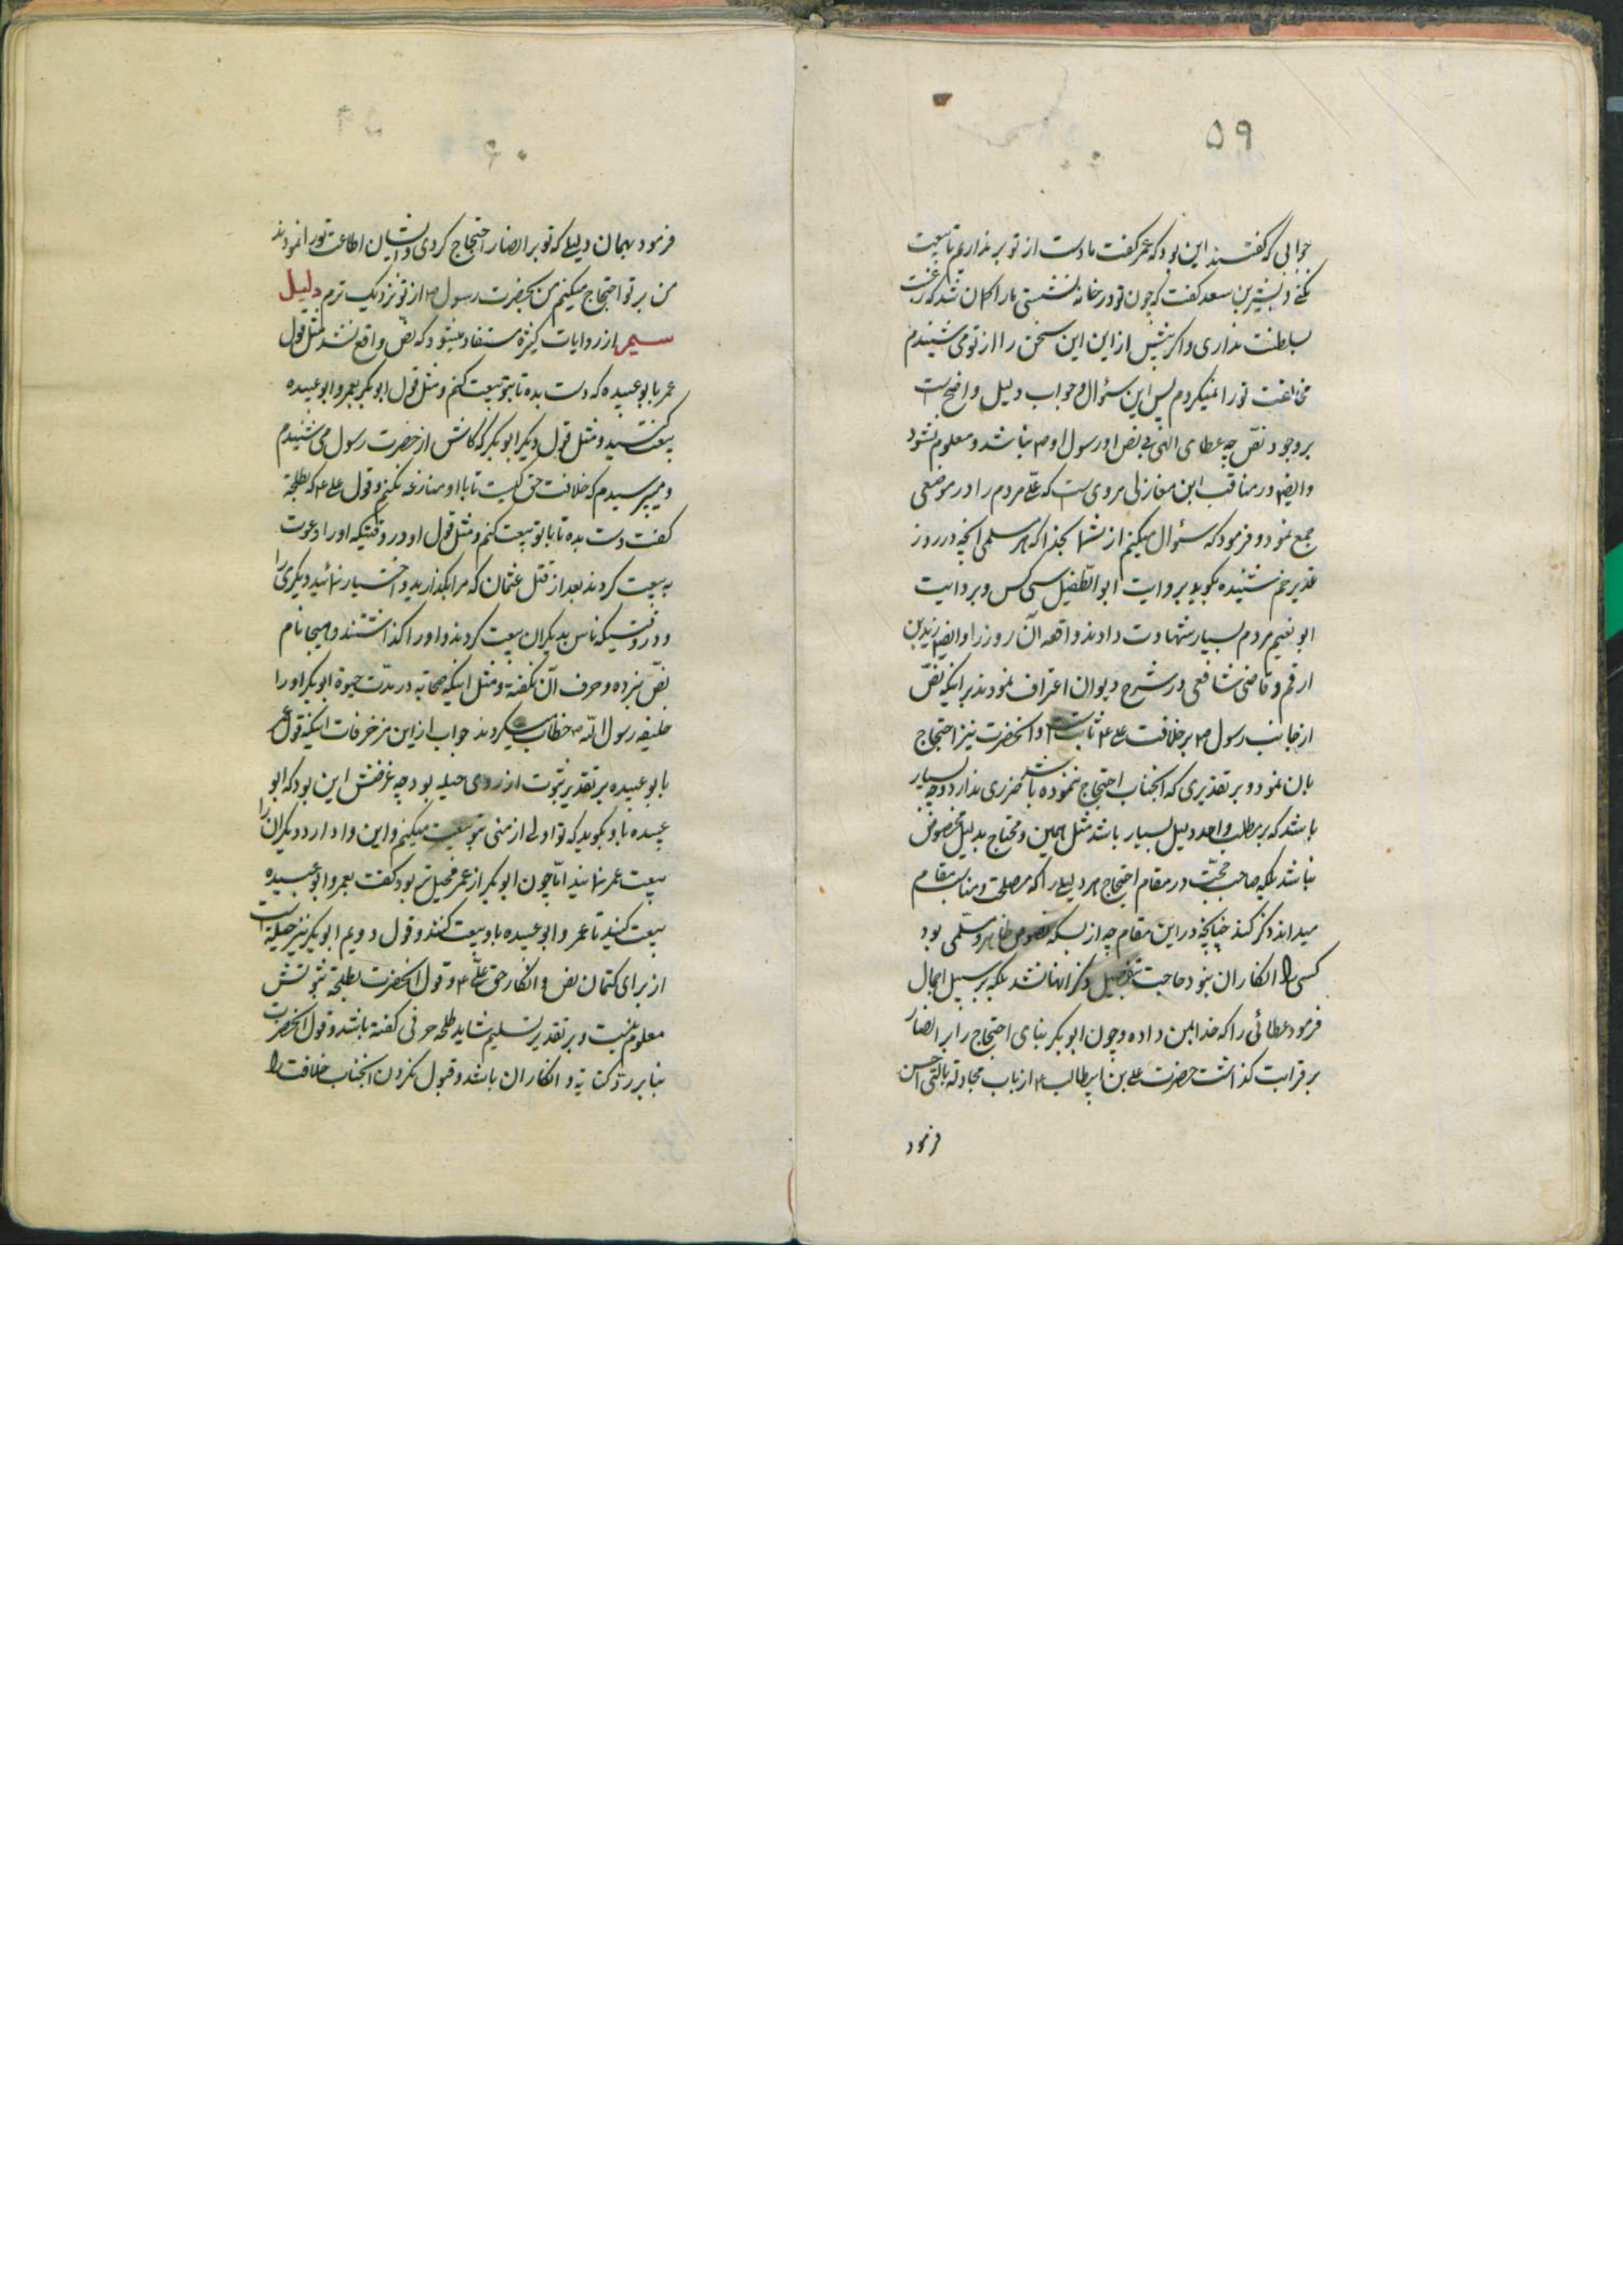 ۵۹
جوابی که گفتند این بود که عمر گفت ما دست از تو بر نداریم تا بیعت
نکنی و بشیر بن سعد گفت که چون تو در خانه نشستی ما را گمان شد که رغبت
بسلطنت نداری و اگر پیش از این این سخن را از تو می شنیدم
مخالفت تو را نمیکردم پس این سؤال و جواب دلیل واضح است
بر وجود نصّ چه عطای الهی بی نص او و رسول او ص نباشد و معلوم نشود
و ایضا در مناقب ابن مغازلی مرویست که علی مردم را در موضعی
جمع نمود و فرمود که سئوال میکنم از شما بخدا که هر مسلمی آنچه در روز
غدیر خم شنیده بگوید بروایت ابو الطّفیل سی کس و بروایت
ابو نعیم مردم بسیار شهادت دادند واقعه آن روز را و ایضا زید بن
ارقم و قاضی شافعی در شرح دیوان اعتراف نمودند بر اینکه نصّ
از جانب رسول ص بر خلافت علی ع ثابت است و آنحضرت نیز احتجاج
بآن نمود و بر تقدیری که آنجناب احتجاج ننموده باشد ضرری ندارد و چه بسیار
باشد که بر مطلب واحد دلیل بسیار باشد مثل همین و محتاج بدلیل مخصوص
نباشد بلکه صاحب حجّت در مقام احتجاج هر دلیلی را که مصلحت و مناسب مقام
میداند ذکر کند چنانچه در این مقام چه از بسکه نصوص ظاهر و مسلّمی بود
کسی را انکار آن نبود حاجت بتفصیل و ذکر آنها نشد بلکه بر سبیل اجمال
فرمود عطائی را که خدا بمن داده و چون ابو بکر بنای احتجاج را بر انصار
بر قرابت گذاشت حضرت علی بن ابیطالب ع از باب مجادله بالتی احسن
فرمود
۶۰
فرمود بهمان دلیلی که تو بر انصار احتجاج کردی و ایشان اطاعت تو را نمودند
من بر تو احتجاج میکنم من بحضرت رسول ص از تو نزدیک ترم دلیل
سیم از روایات کثیره مستفاد میشود که نص واقع نشد مثل قول
عمر بابو عبیده که دست بده تا بتو بیعت کنم و مثل قول ابو بکر بعمر و ابو عبیده
بیعت کنید و مثل قول دیگر ابو بکر که کاش از حضرت رسول می شنیدم
و میپرسیدم که خلافت حق کیست تا با او منازعه نکنم و قول علی ع که بطلحه
گفت دست بده تا با تو بیعت کنم و مثل قول او در وقتیکه او را دعوت
به بیعت کردند بعد از قتل عثمان که مرا بگذارید و اختیار نمائید دیگری را
و در وقتیکه ناس بدیگران بیعت کردند و او را گذاشتند و هیچ نام
نصّ نبرده و حرف آن نگفته و مثل اینکه صحابه در مدّت حیوة ابو بکر او را
خلیفه رسول اللّه ص خطاب میکردند جواب از این مزخرفات اینکه قول عمر
بابو عبیده بر تقدیر ثبوت از روی حیله بود چه غرضش این بود که ابو
عبیده باو بگوید که تو اولی از منی بتو بیعت میکنم و این وادارد دیگران را
ببیعت عمر نمایند امّا چون ابو بکر از عمر محیل تر بود گفت بعمر و ابو عبیده
بیعت کنید تا عمر و ابو عبیده باو بیعت کنند و قول دویم ابو بکر نیز حیله است
از برای کتمان نص و انکار حق علی ع و قول آنحضرت بطلحه ثبوتش
معلوم نیست و بر تقدیر تسلیم شاید طلحه حرفی گفته باشد و قول آنحضرت
بنا بر ردّ کنایه و انکار آن باشد و قبول نکردن آنجناب خلافت را